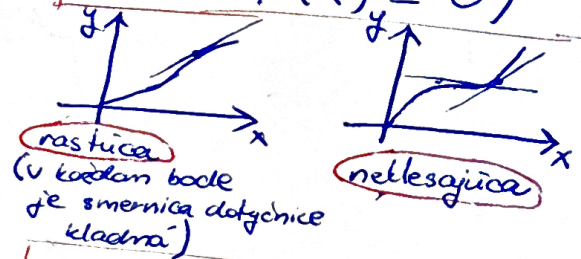 y
x
rastúca
(v každom bode
je smernica dotyčnice
kladná)
y
x
neklesajúca